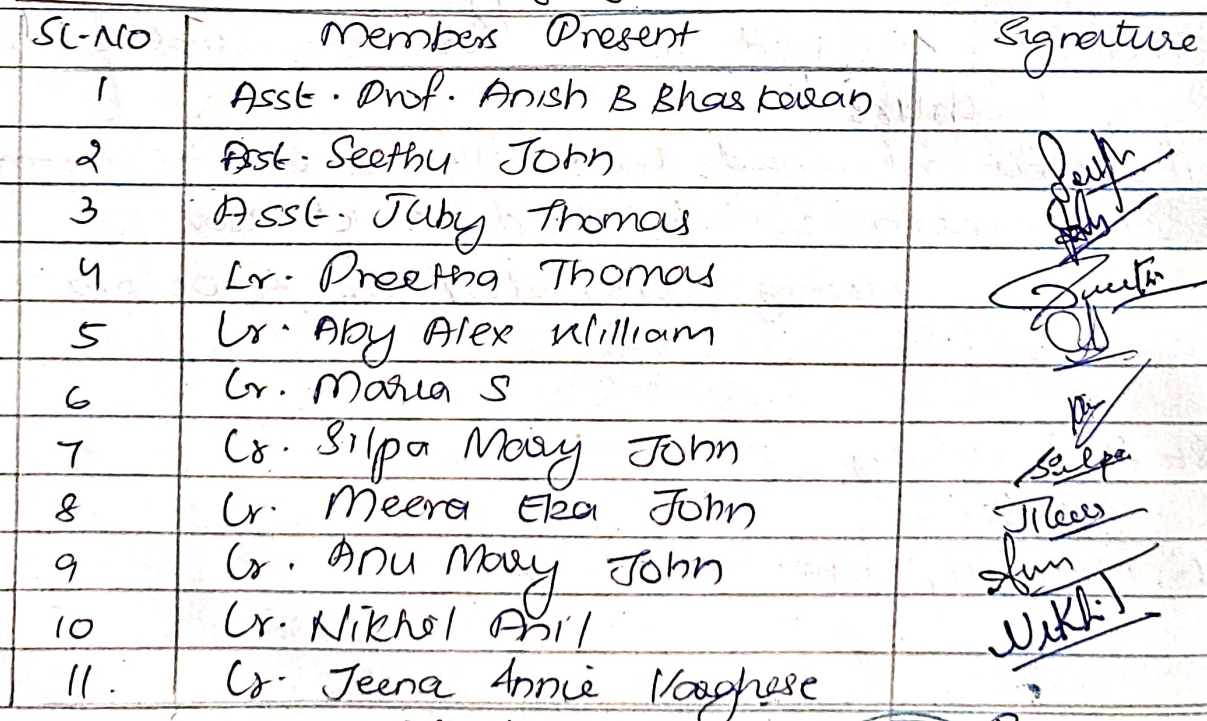 SL-NO Members Present Signature
1 Asst. Prof. Anish B Bhaskaran
2 Asst. Seethu John
3 Asst. Juby Thomas
4 Lr. Preetha Thomas
5 Lr. Aby Alex William
6 Lr. Maria S
7 Lr. Silpa Mary John Silpa
8 Lr. Meera Elza John
9 Lr. Anu Mary John
10 Lr. Nikhil Anil Nikhil
11. Lr. Jeena Annie Varghese